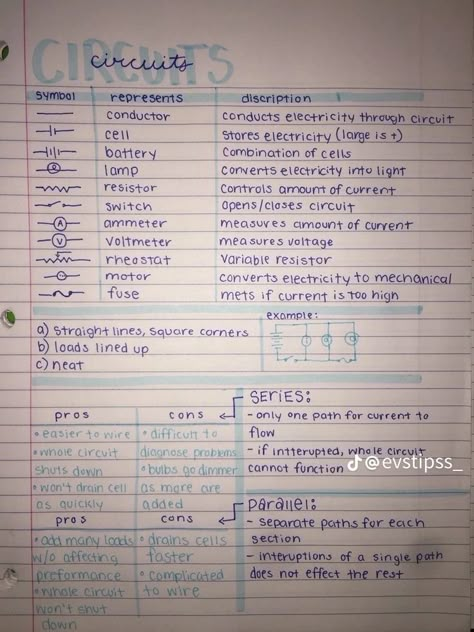 CIRCUITS
circuits
symbol represents discription
conductor conducts electricity through circuit
cell stores electricity (large is +)
battery combination of cells
lamp converts electricity into light
resistor controls amount of current
switch opens/closes circuit
A ammeter measures amount of current
V voltmeter measures voltage
rheostat variable resistor
motor converts electricity to mechanical
fuse mets if current is too high
example:
a) straight lines, square corners
b) loads lined up
c) neat
pros cons
• easier to wire
• whole circuit
shuts down
• won't drain cell
as quickly
• difficult to
diagnose problems
• bulbs go dimmer
as more are
added
SERIES:
- only one path for current to
flow
- if intterupted, whole circuit
cannot function
@evstipss_
pros cons
• add many loads
w/o affecting
preformance
• whole circuit
won't shut
down
• drains cells
faster
• complicated
to wire
parallel:
- separate paths for each
section
- interuptions of a single path
does not effect the rest